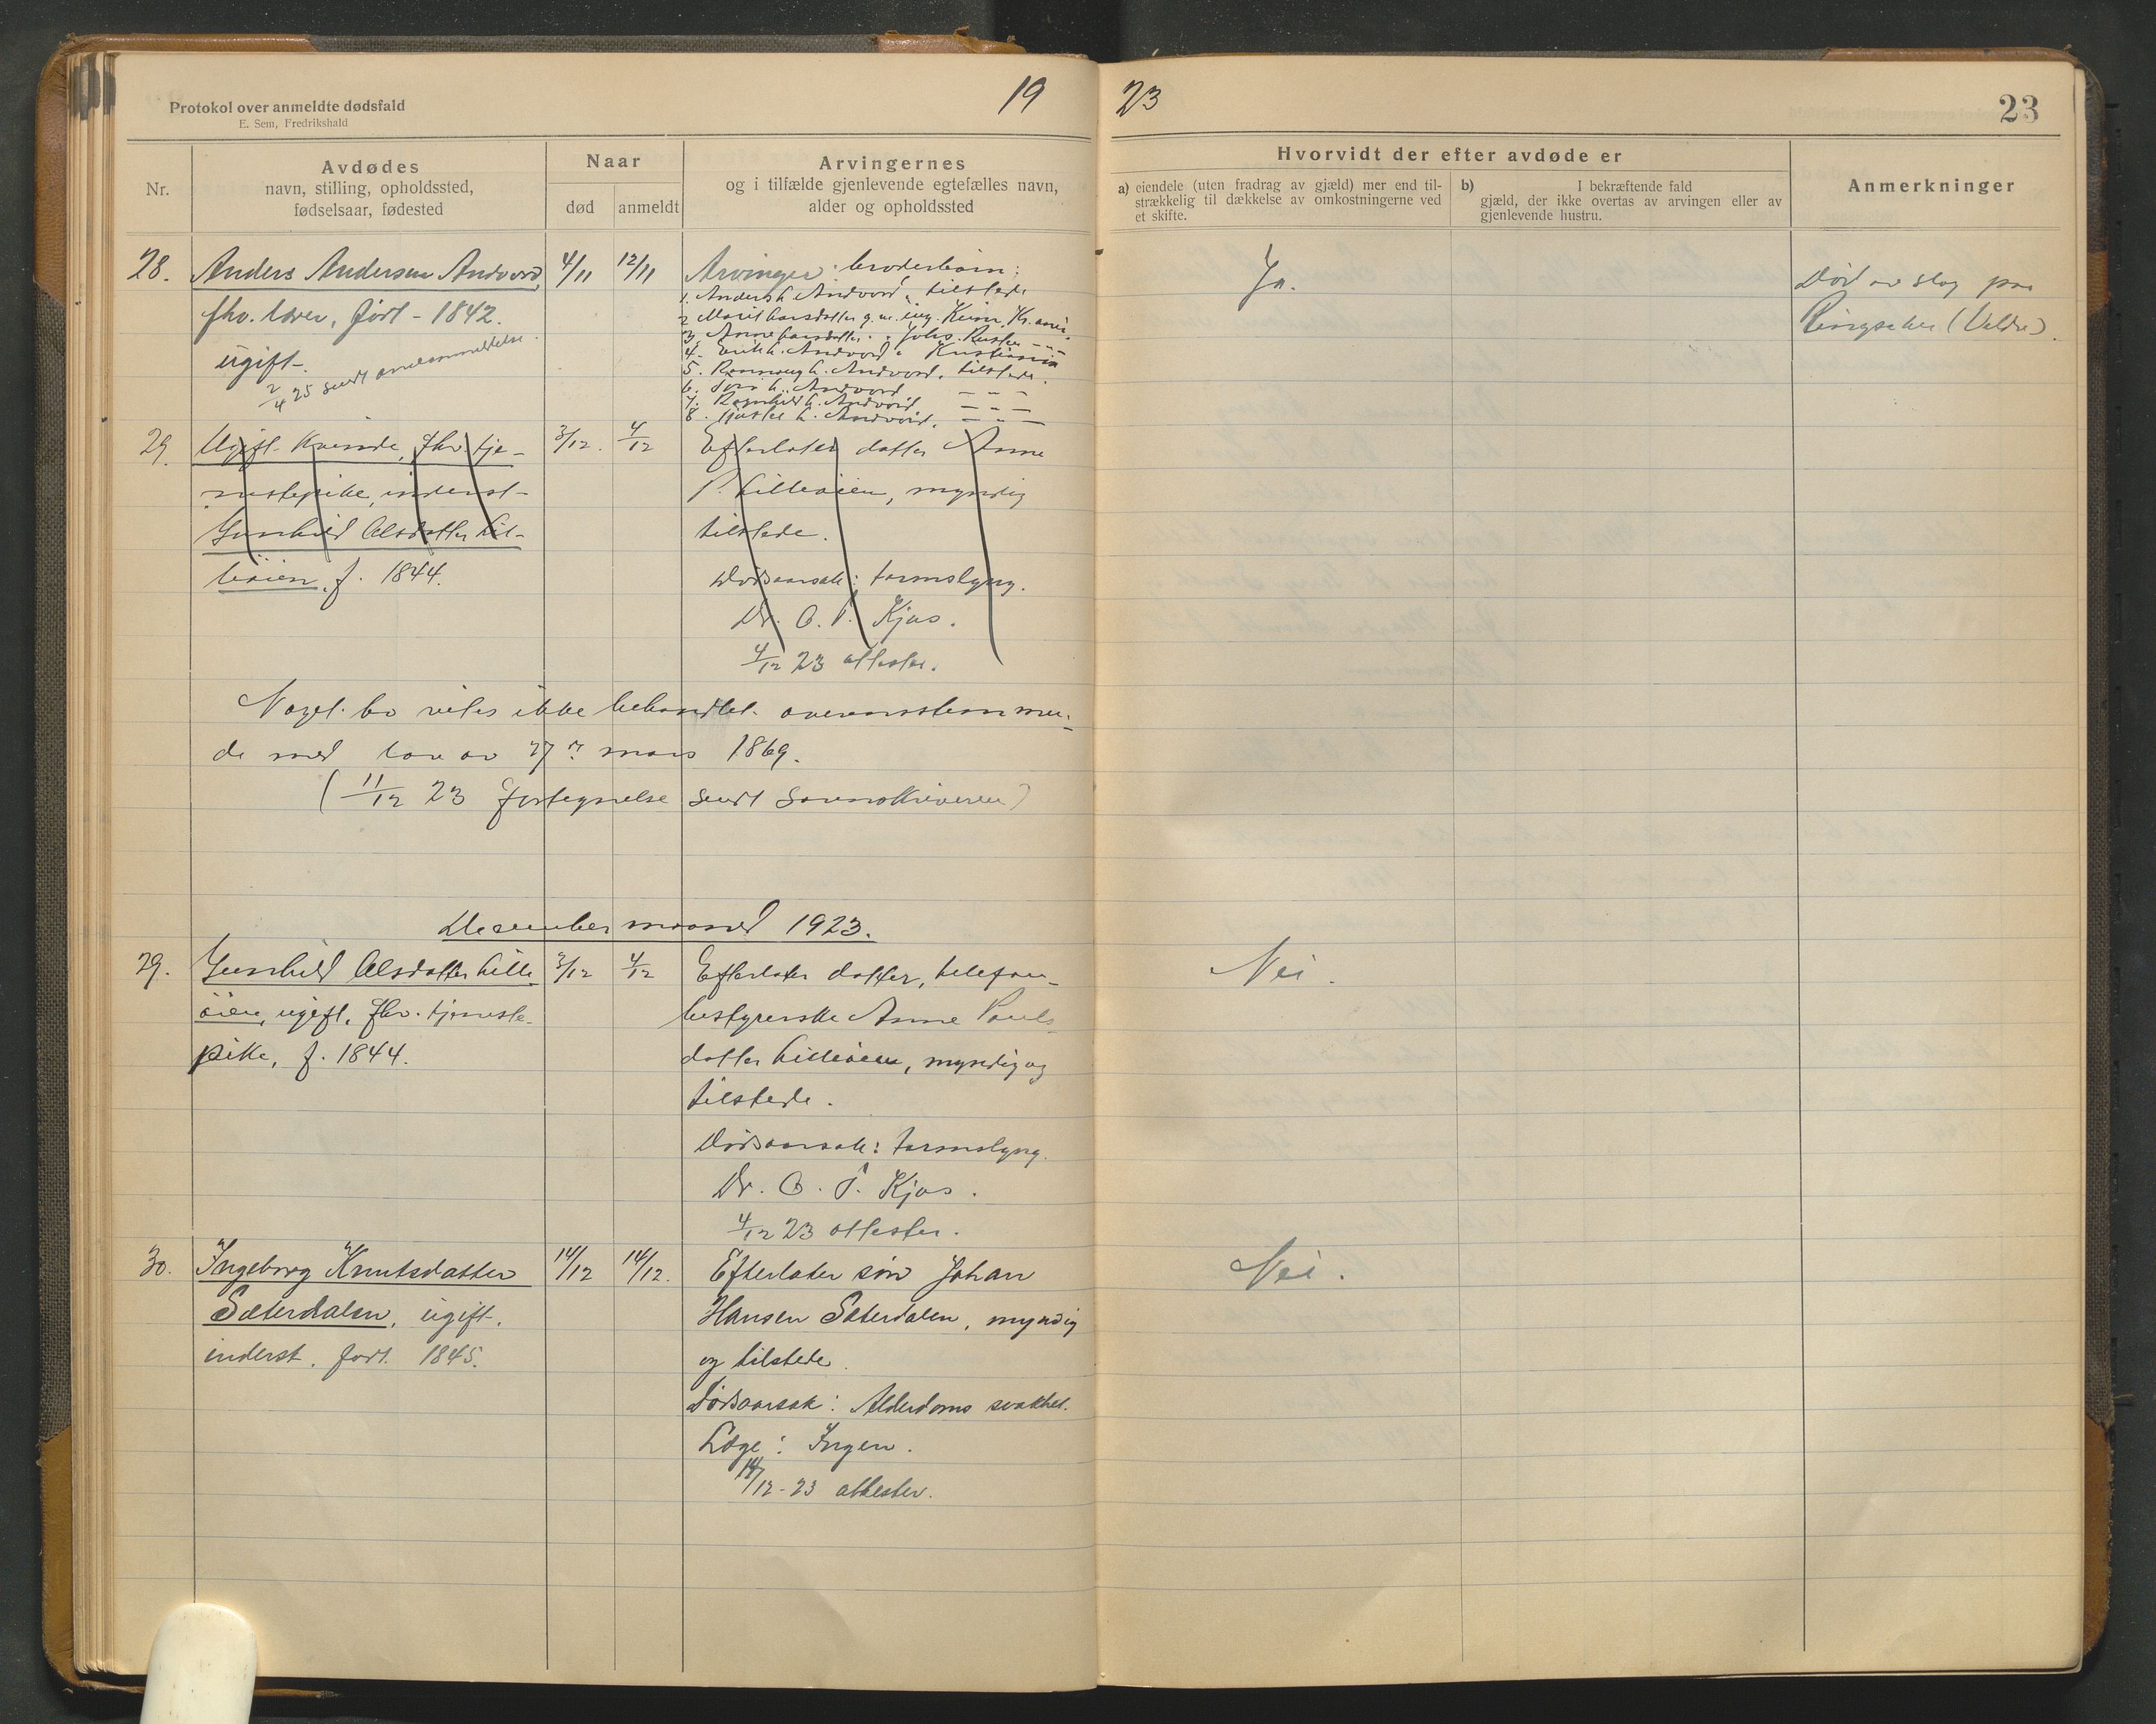 Protokol over anmeldte dødsfald
E. Sem, Fredrikshald
19
23
23
Nr.
Avdødes
navn, stilling, opholdssted,
fødselsaar, fødested
Naar
død
anmeldt
Arvingernes
og i tilfælde gjenlevende egtefælles navn,
alder og opholdssted
Hvorvidt der efter avdøde er
a) eiendele (uten fradrag av gjæld) mer end til-
strækkelig til dækkelse av omkostningerne ved
et skifte.
b) I bekræftende fald
gjæld, der ikke overtas av arvingen eller av
gjenlevende hustru.
Anmerkninger
28.
Anders Andersen Andvord,
fhv. lærer, født - 1842.
ugift.
2/4 25 sendt
4/11
12/11
Arvinger: broderbørn:
1. Anders L. Andvord, tilstede
2 Marit Larsdatter g. m. Kr.ania
3. Anne Larsdatter
4. Erik L. Andvord, Kristiania
5. Rønnaug L. Andvord, tilstede.
6. L. Andvord — " —
7. Ragnhild L. Andvord — " —
8. L. Andvord. — " —
Ja.
Død av slag paa
Ringsaker (Veldre).
29.
Ugift kvinde, fhv. tje-
nestepike, inderst -
Gunhild Olsdatter Lil-
leøien, f. 1844.
3/12.
4/12
Efterlater datter Anne
P. Lilleøien, myndig
tilstede.
Dødsaarsak: tarmslyng.
Dr. O. T. Kjos.
4/12 23 attester.
Noget bo vites ikke behandlet overensstemmen-
de med lov av 27. mars 1869.
(11/12 23 fortegnelse sendt Sorenskriveren)
December maaned 1923.
29.
Gunhild Olsdatter Lille-
øien, ugift, fhv. tjeneste-
pike, f. 1844.
3/12
4/12
Efterlater datter, telefon-
bestyrerske Anne Pauls-
datter Lilleøien, myndig og
tilstede.
Dødsaarsak: tarmslyng.
Dr. O. T. Kjos.
4/12 23 attester.
Nei.
30.
Ingeborg Knutsdatter
Sæterdalen, ugift.
inderst. født 1845.
14/12
14/12.
Efterlater søn Johan
Hansen Sæterdalen, myndig
og tilstede.
Dødsaarsak: Alderdoms svakhet.
Læge: Ingen.
14/12-23 attester.
Nei.